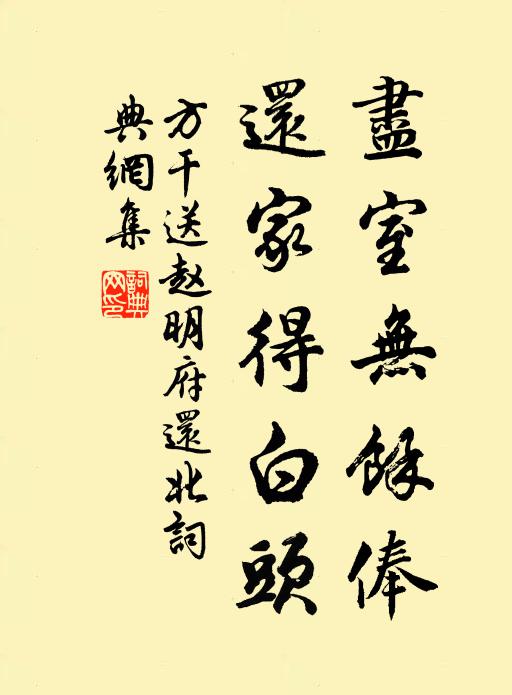 盡室無餘俸
還家得白頭
方干送赵明府還北詞
典網集
詞典網印